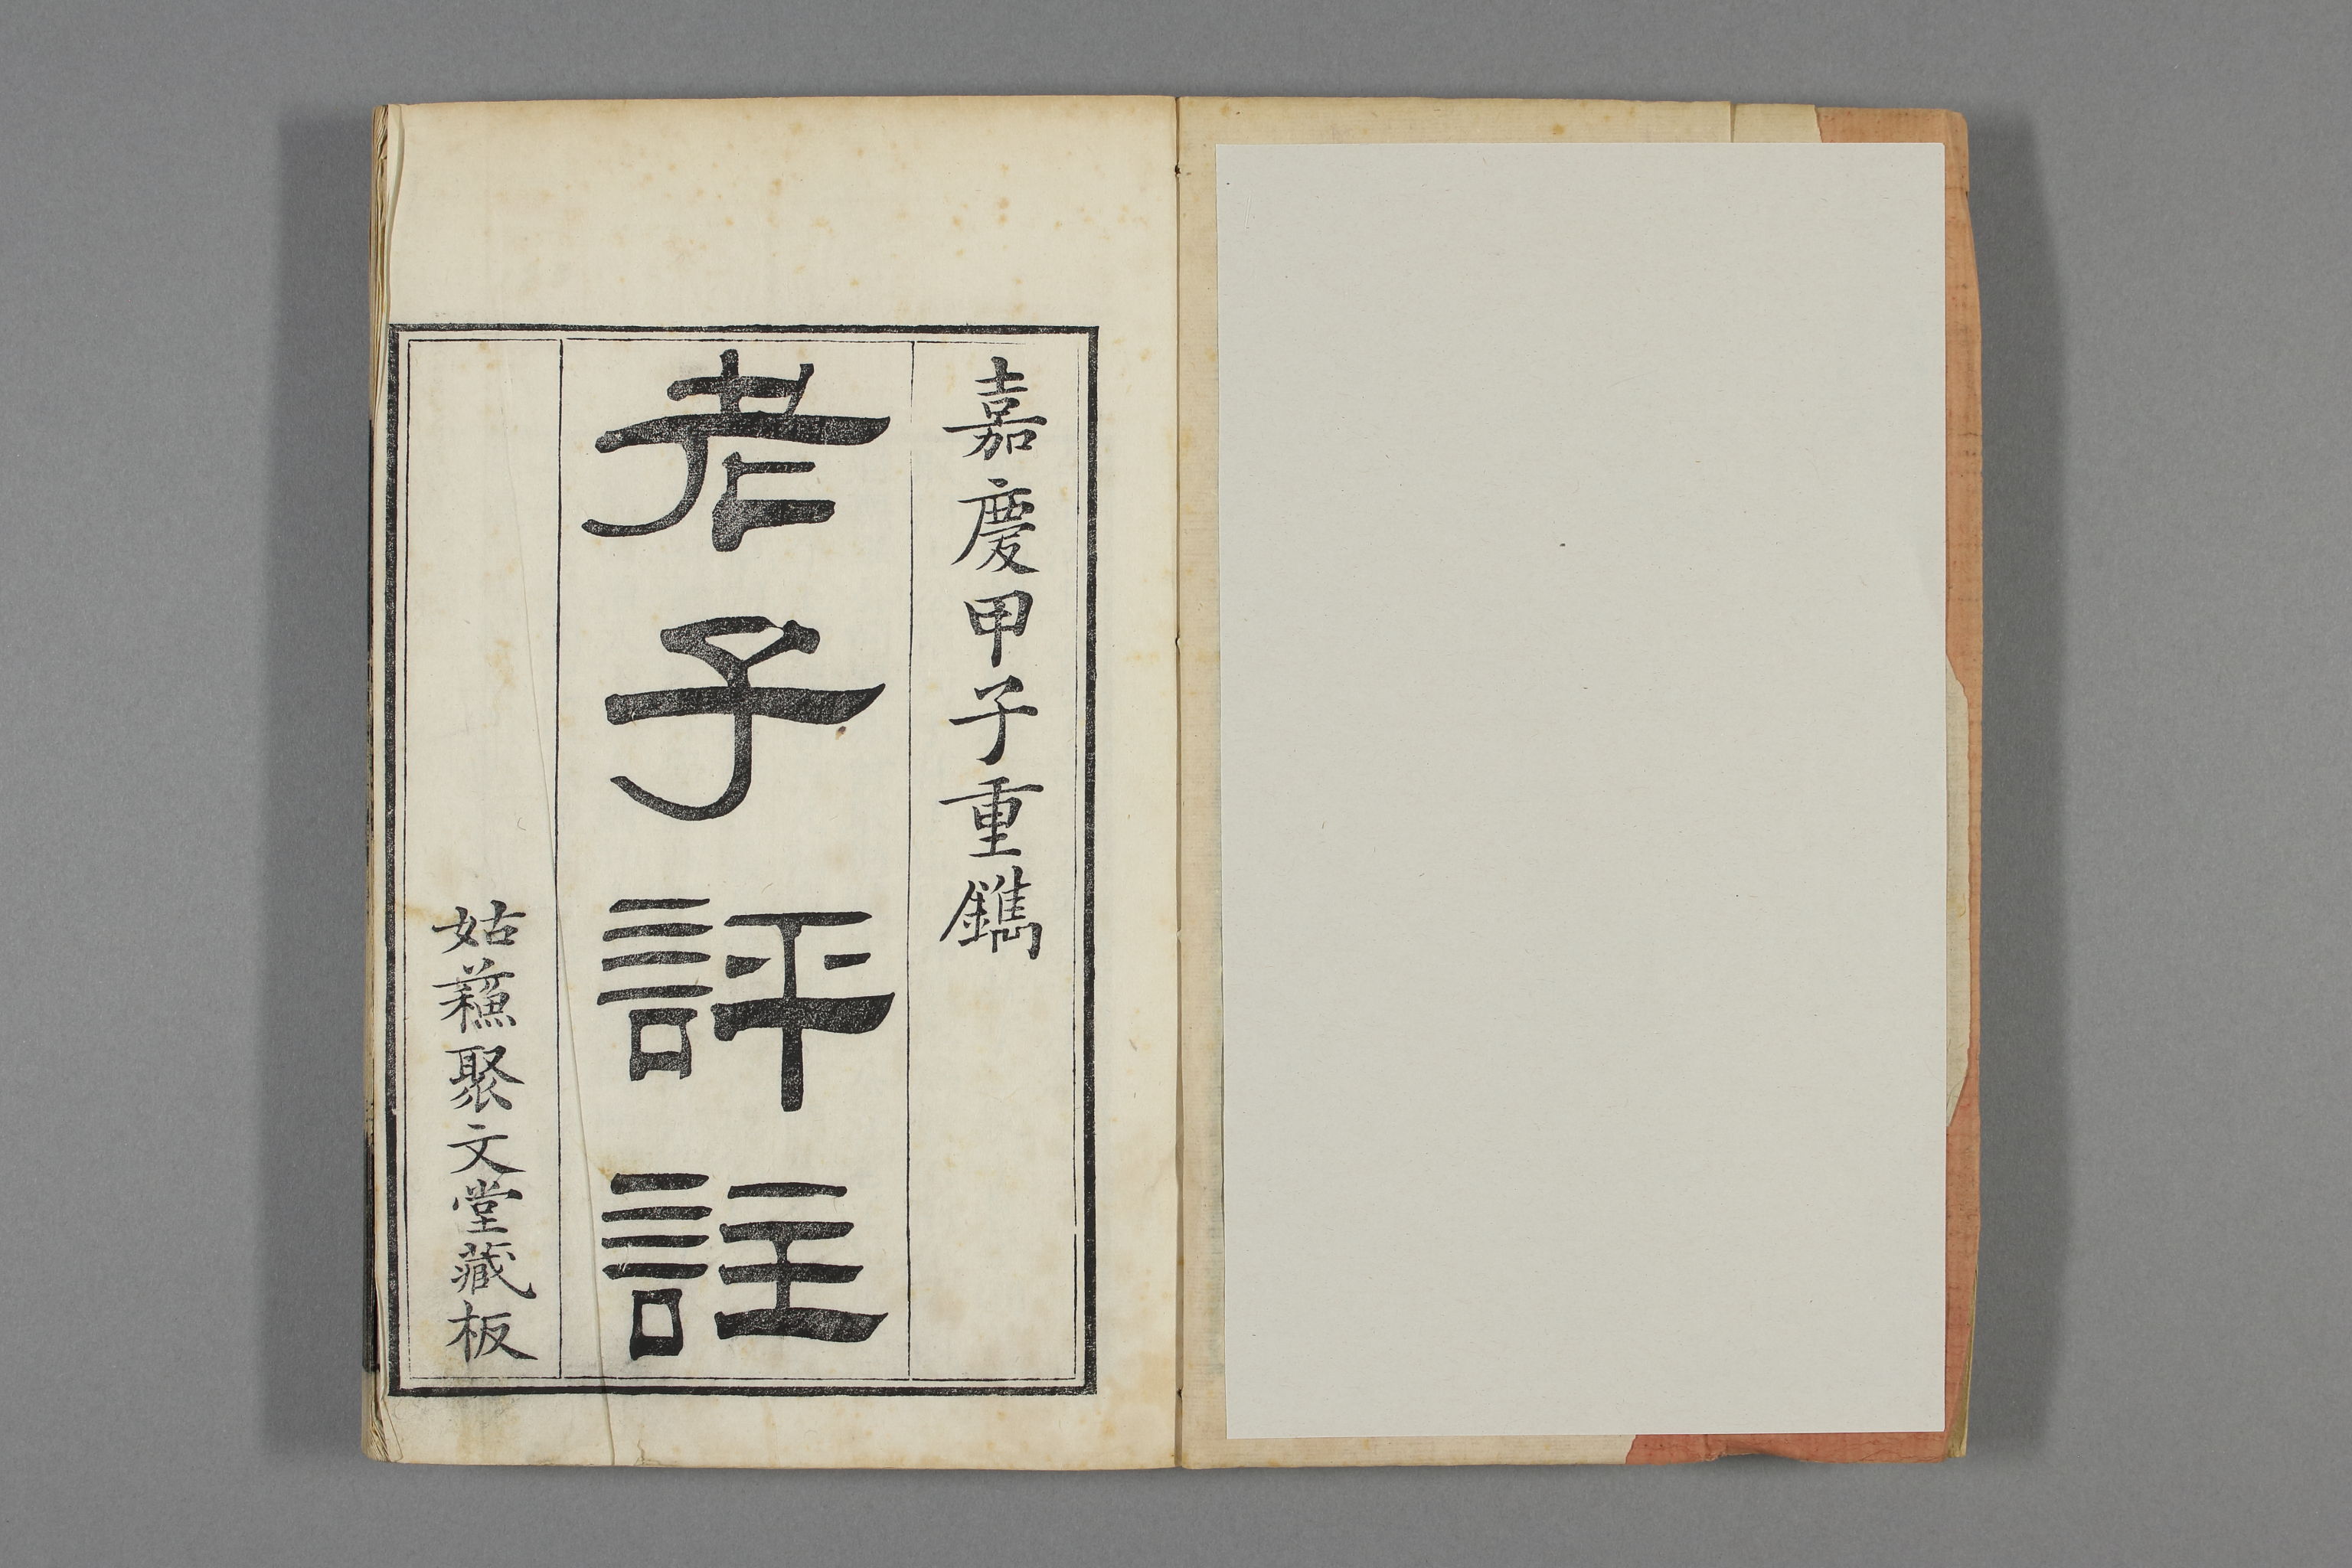 嘉慶甲子重鐫
老子評註
姑蘓聚文堂藏板